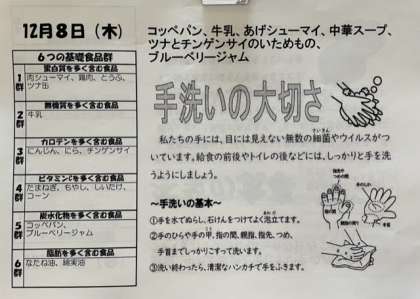 12月8日（木）
コッペパン、牛乳、あげシューマイ、中華スープ、
ツナとチンゲンサイのいためもの、
ブルーベリージャム
6つの基礎食品群
蛋白質を多く含む食品
1群
肉シューマイ、鶏肉、とうふ、
ツナ缶
無機質を多く含む食品
2群
牛乳
カロテンを多く含む食品
3群
にんじん、にら、チンゲンサイ
ビタミンCを多く含む食品
4群
たまねぎ、もやし、しいたけ、
コーン
炭水化物を多く含む食品
5群
コッペパン、
ブルーベリージャム
脂肪を多く含む食品
6群
なたね油、綿実油
手洗いの大切さ
私たちの手には、目には見えない無数の細菌やウイルスがつ
さいきん
いています。給食の前後やトイレの後などには、しっかりと手を洗
うようにしましょう。
～手洗いの基本～
①手を水でぬらし、石けんをつけてよく泡立てます。
あわだ
②手のひらや手の甲、指の間、親指、指先、つめ、
手首までしっかりこすって洗います。
③洗い終わったら、清潔なハンカチで手をふきます。
指先や
つめの間
指の間
手のしわ
親指
手首